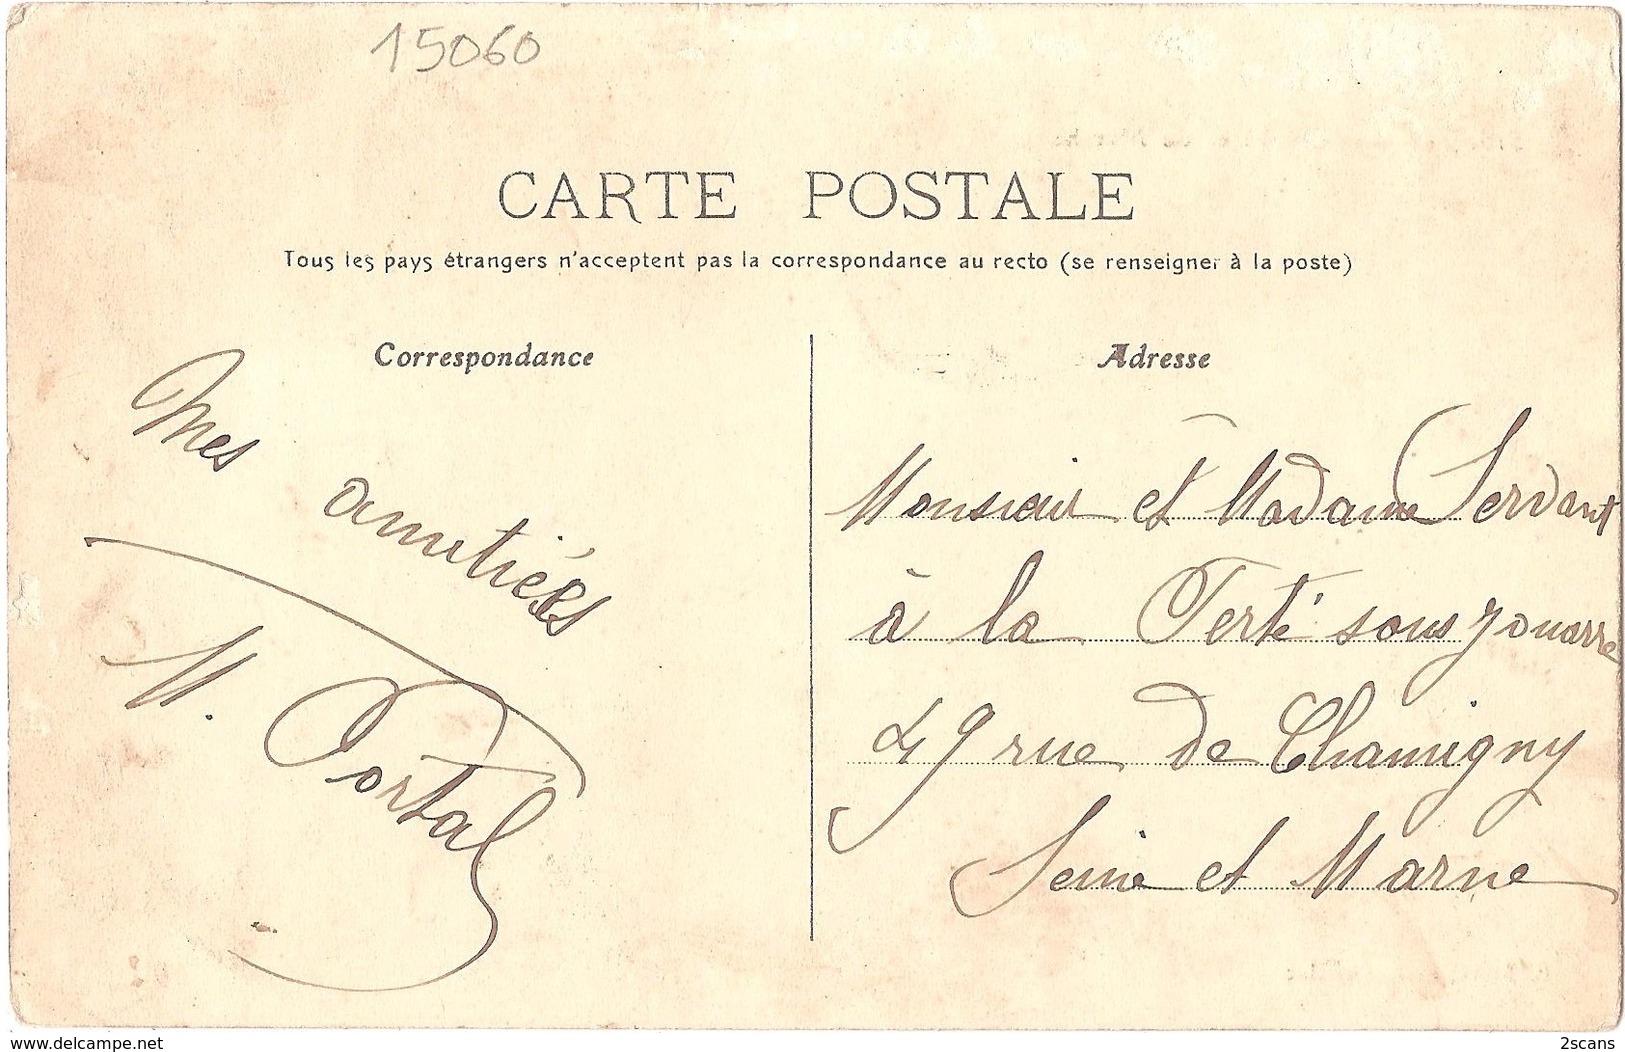 15060
CARTE POSTALE
Tous les pays étrangers n'acceptent pas la correspondance au recto (se renseigner à la poste)
Correspondance
Mes
amitiés
M. Portal
Adresse
Monsieur et Madame Servant
à la Ferté sous Jouarre
49 rue de Chamigny
Seine et Marne
www.delcampe.net
2scans